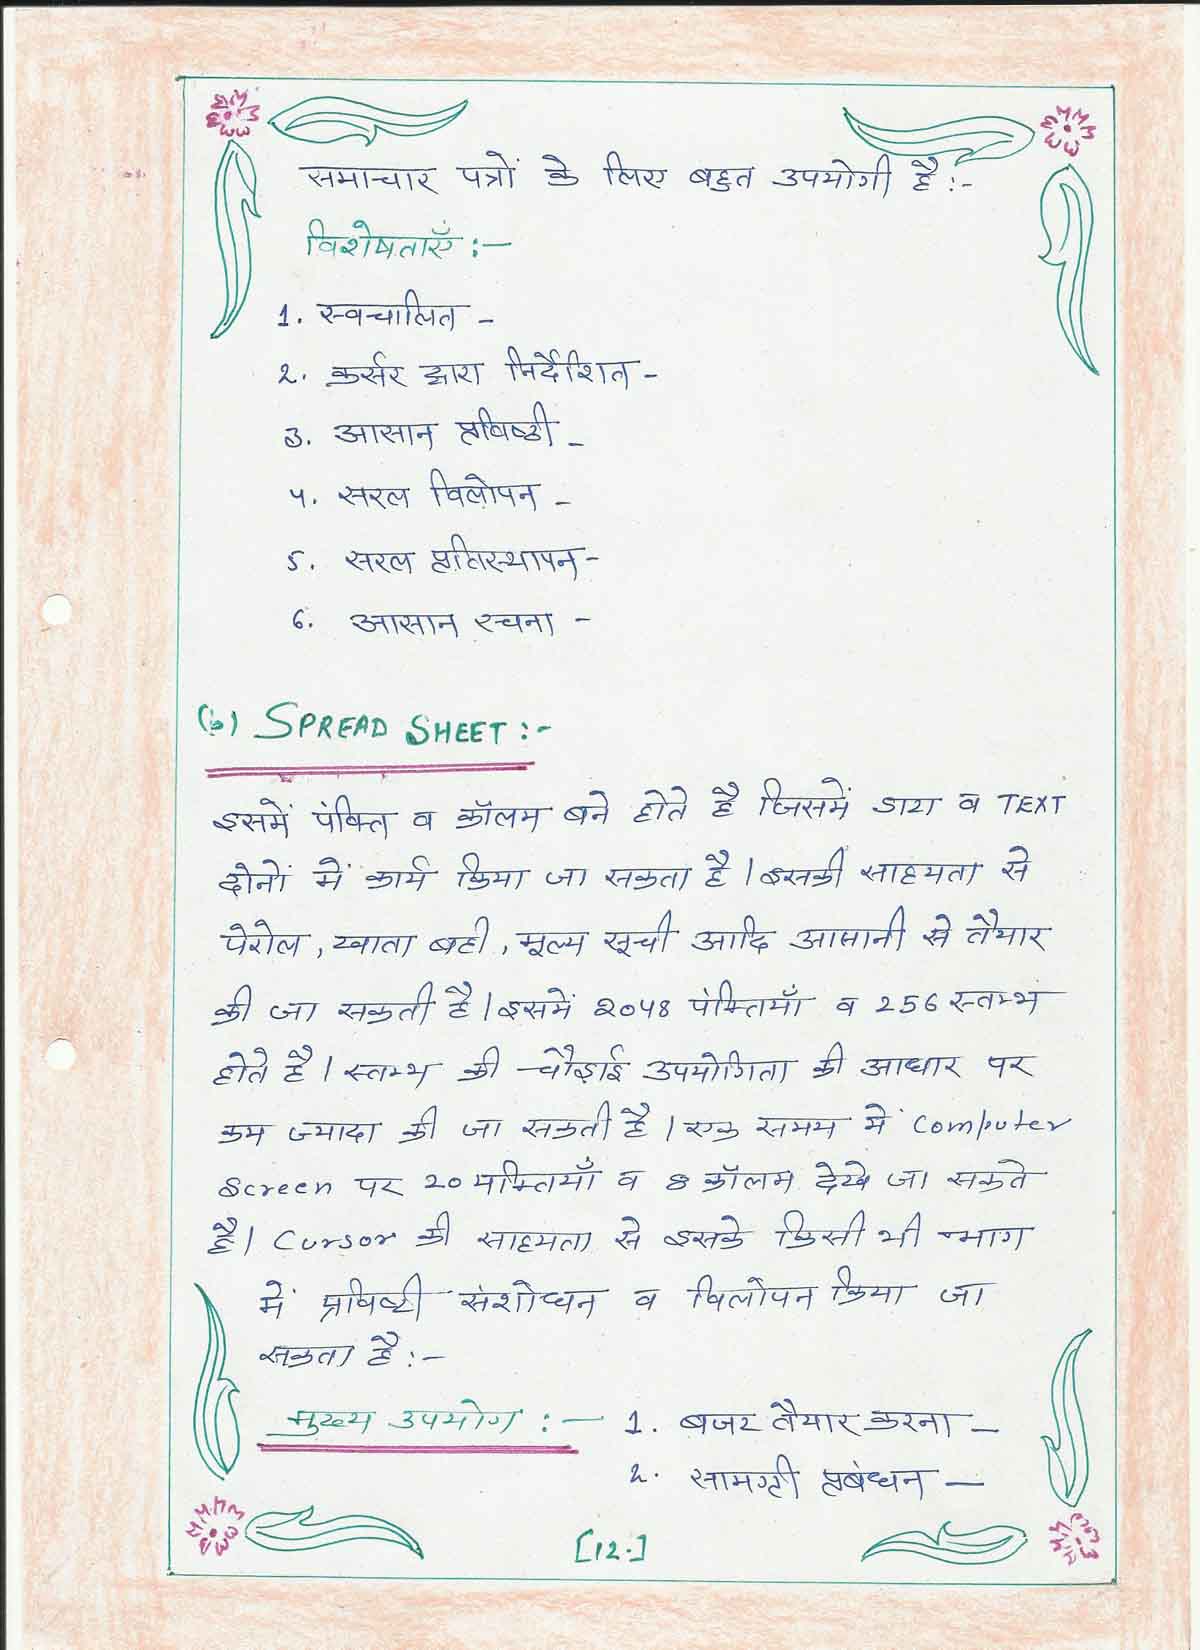 समाचार पत्रों के लिए बहुत उपयोगी है :-
विशेषताएँ :-
1. स्वचालित -
2. कर्सर द्वारा निर्देशित -
3. आसान प्रविष्टी -
4. सरल विलोपन -
5. सरल प्रतिस्थापन -
6. आसान रचना -
(b) SPREAD SHEET :-
इसमें पंक्ति व कॉलम बने होते है जिसमें डाटा व TEXT
दोनों में कार्य किया जा सकता है । इसकी साहयता से
पेरोल , खाता बही , मूल्य सूची आदि आसानी से तैयार
की जा सकती है । इसमें 2048 पंक्तियाँ व 256 स्तम्भ
होते है । स्तम्भ की चौड़ाई उपयोगिता की आधार पर
कम ज्यादा की जा सकती है । एक समय में Computer
Screen पर 20 पंक्तियाँ व 8 कॉलम देखे जा सकते
है । Cursor की साहयता से इसके किसी भी भाग
में प्रविष्टी संशोधन व विलोपन किया जा
सकता है :-
मुख्य उपयोग :- 1. बजट तैयार करना -
2. सामग्री प्रबंधन -
[12.]